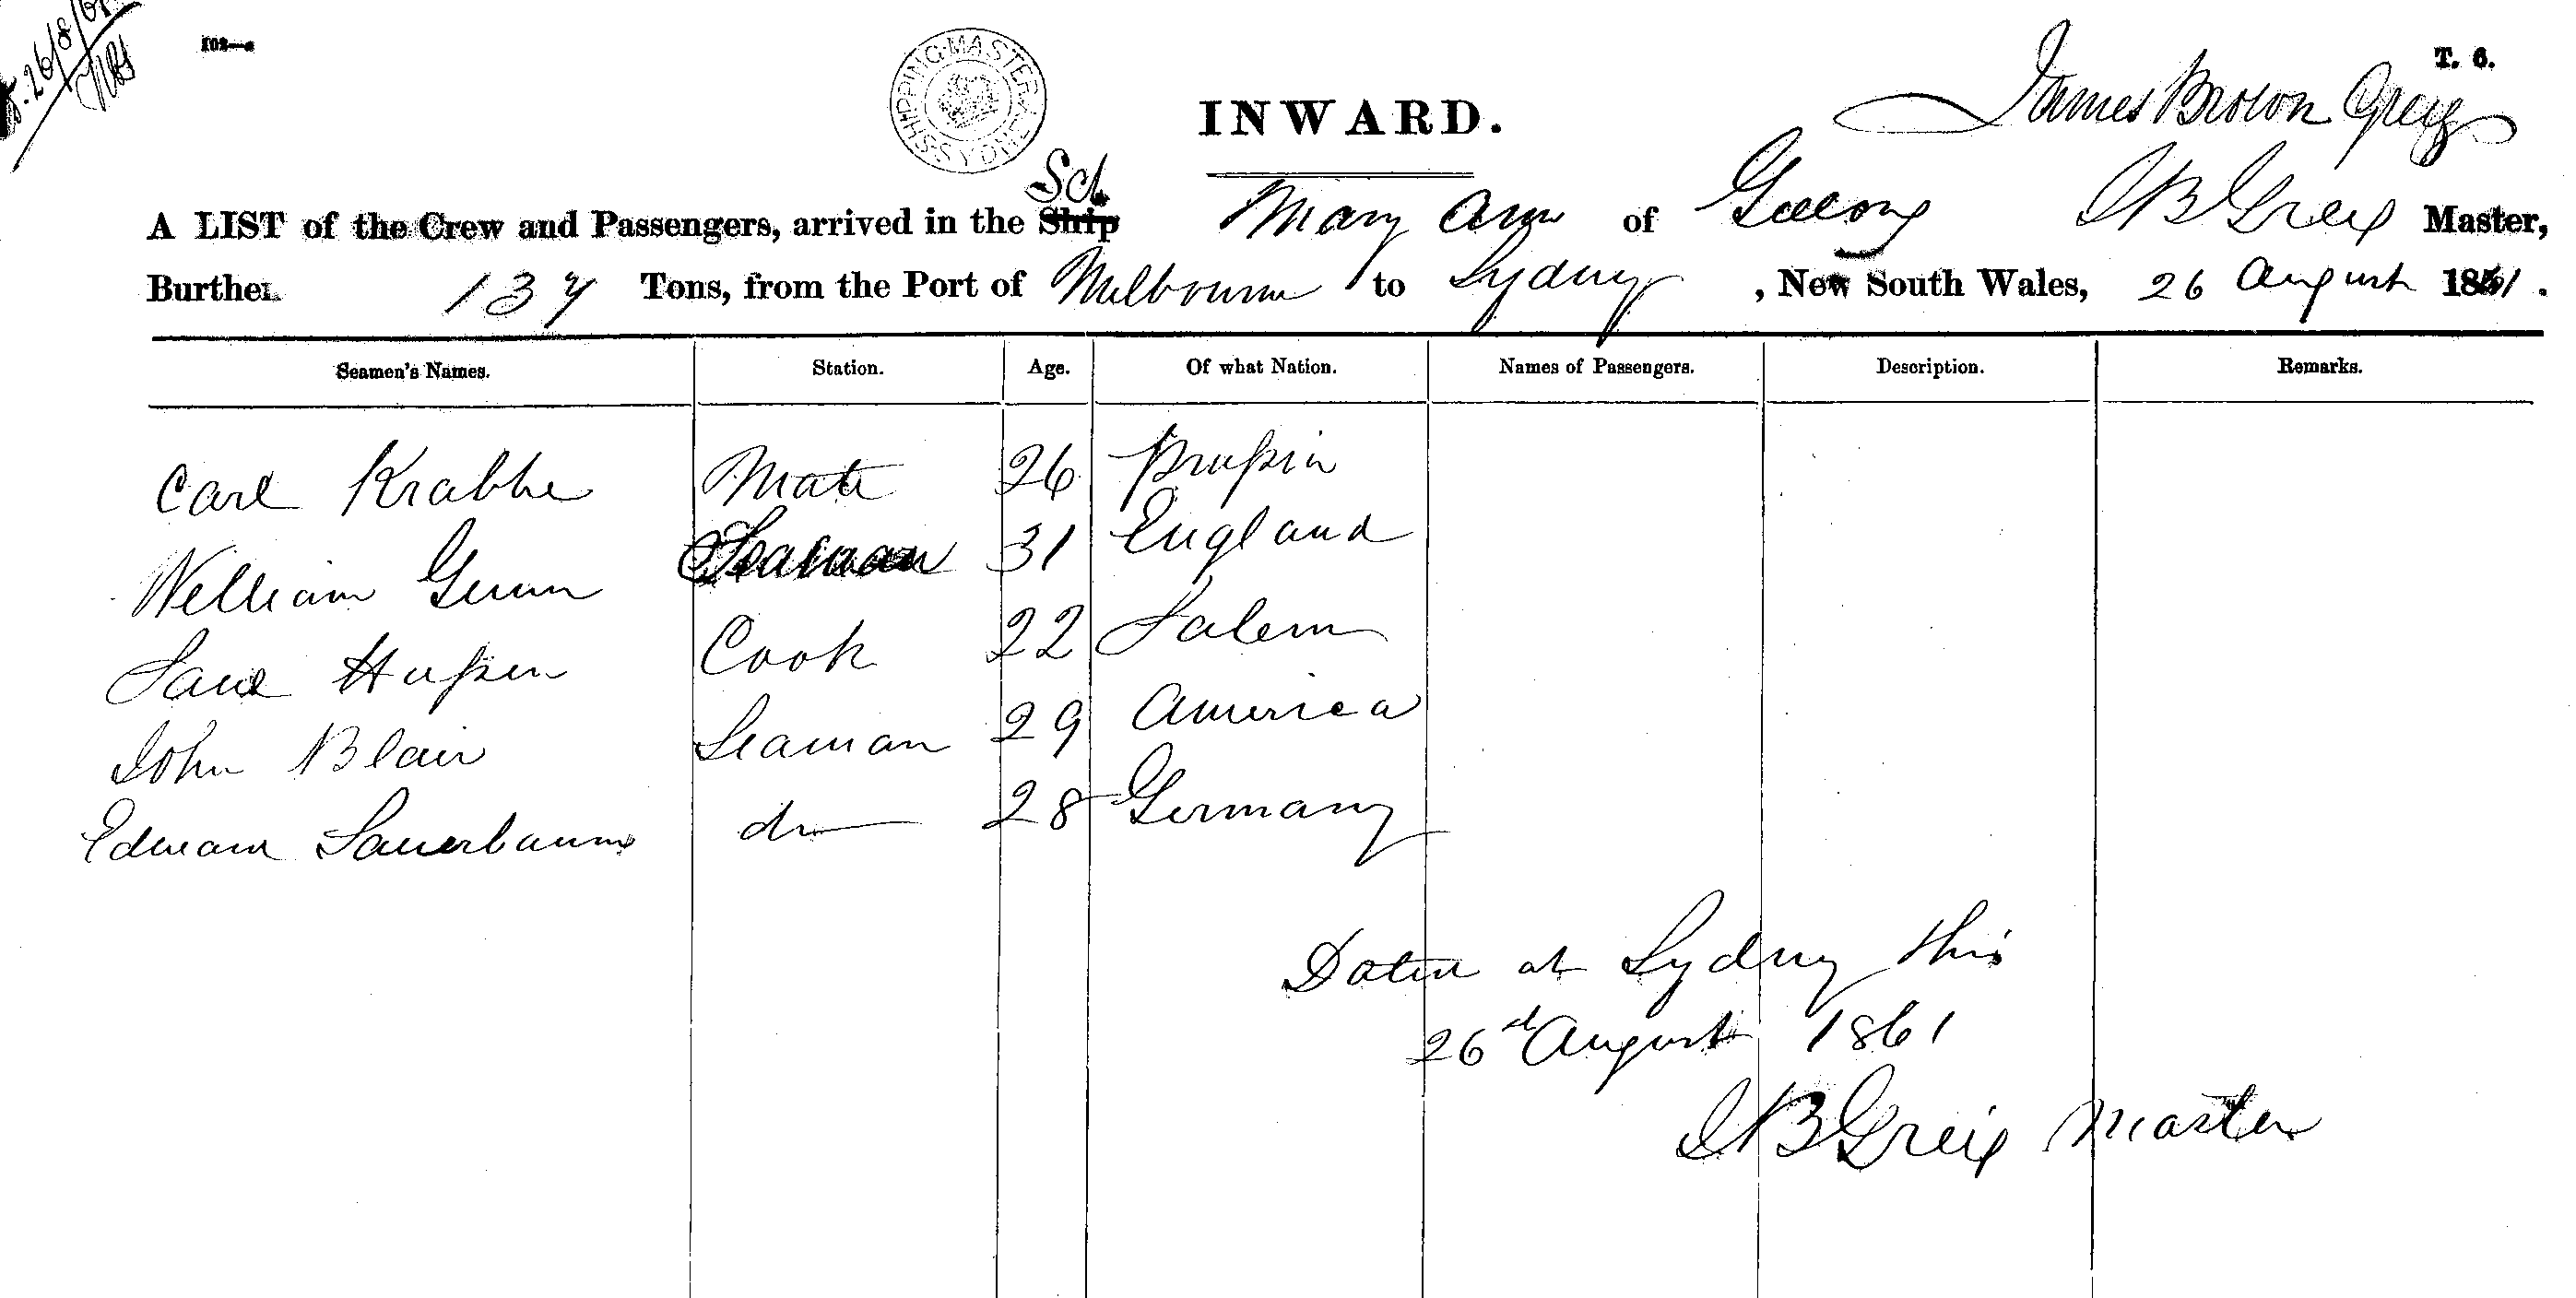 26/8/61
102—a
SHIPPING MASTER SYDNEY
T. 6.
James Brown Greig
INWARD.
Sch
A LIST of the Crew and Passengers, arrived in the Ship Mary Ann of Geelong J B Greig Master,
Burthen 137 Tons, from the Port of Melbourne to Sydney, New South Wales, 26 August 1861.
Seamen's Names. Station. Age. Of what Nation. Names of Passengers. Description. Remarks.
Carl Krabbe Mate 26 Prussia
William Gunn Seaman 31 England
Cook 22 Salem
John Blair Seaman 29 America
Edward Sauerbaum do 28 Germany
Dated at Sydney this
26th August 1861
J B Greig Master